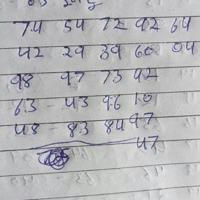 74 54 72 92 64
42 29 39 60 04
98 97 73 42
63 - 43 96 10
48 - 83 84 97
47